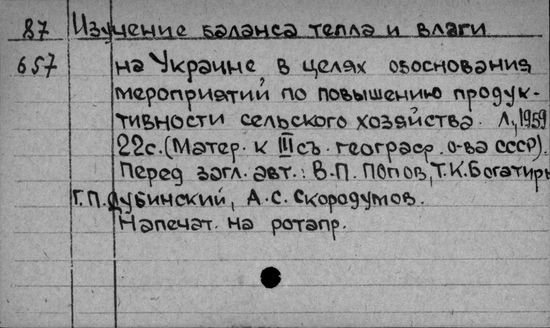 87 Изучение баланса тепла и влаги
657 на Украине в целях обоснования
мероприятий по повышению продук-
тивности сельского хозяйства. Л., 1959
22с. (Матер. к III съ. географ. о-ва СССР).
Перед загл. авт.: В.П. Попов, Т.К. Богатирь
Г.П. Дубинский, А.С. Скородумов.
Напечат. на ротапр.